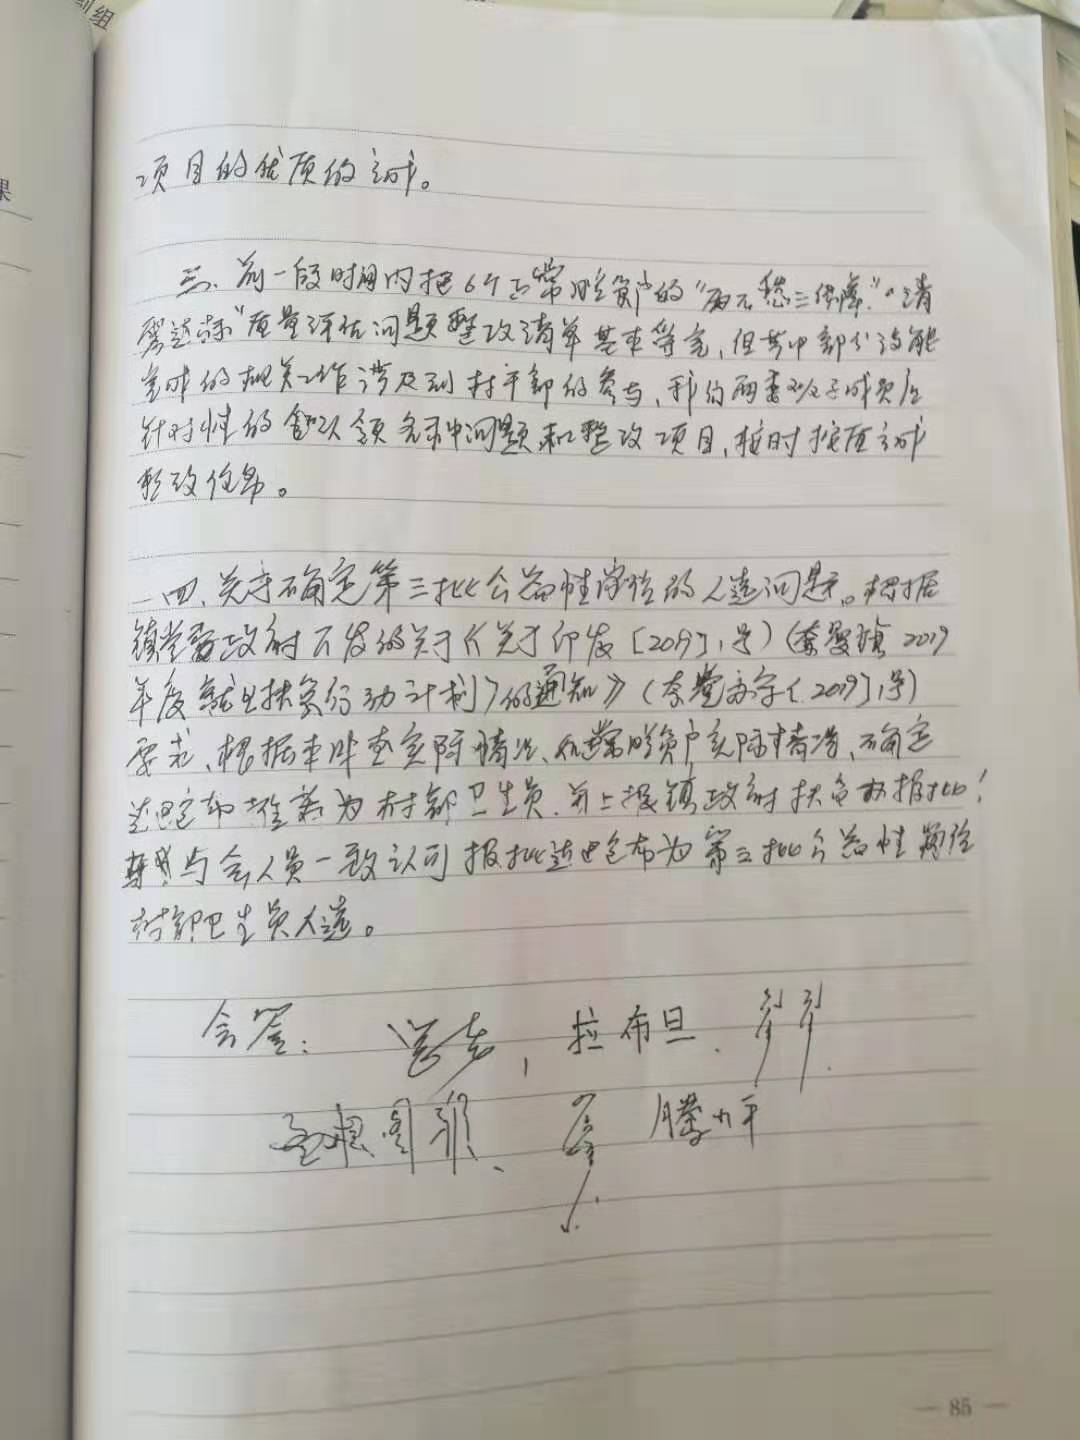 项目的优质的完成。
三、前一段时间内把6个常贫户的“两不愁三保障”“清
零达标”质量评估问题整改清单基本等完,但其中部分没能
完成的相关工作涉及到村干部的参与,我们两委班子成员应
针对性的认领各种问题和整改项目,按时按质完成
整改任务。
四、关于确定第三批公益性岗位的人选问题。根据
镇党委政府下发的关于《关于印发[2019]1号)(镇2019
年度就业扶贫行动计划》的通知》(党字[2019]1号)
要求、根据本实际情况、贫户实际情况、确定
布推荐为村部卫生员,并上报镇政府扶贫办报批!
与会人员一致认可报批布为第三批公益性岗位
村部卫生员人选。
会签: 拉布旦
图
果
85